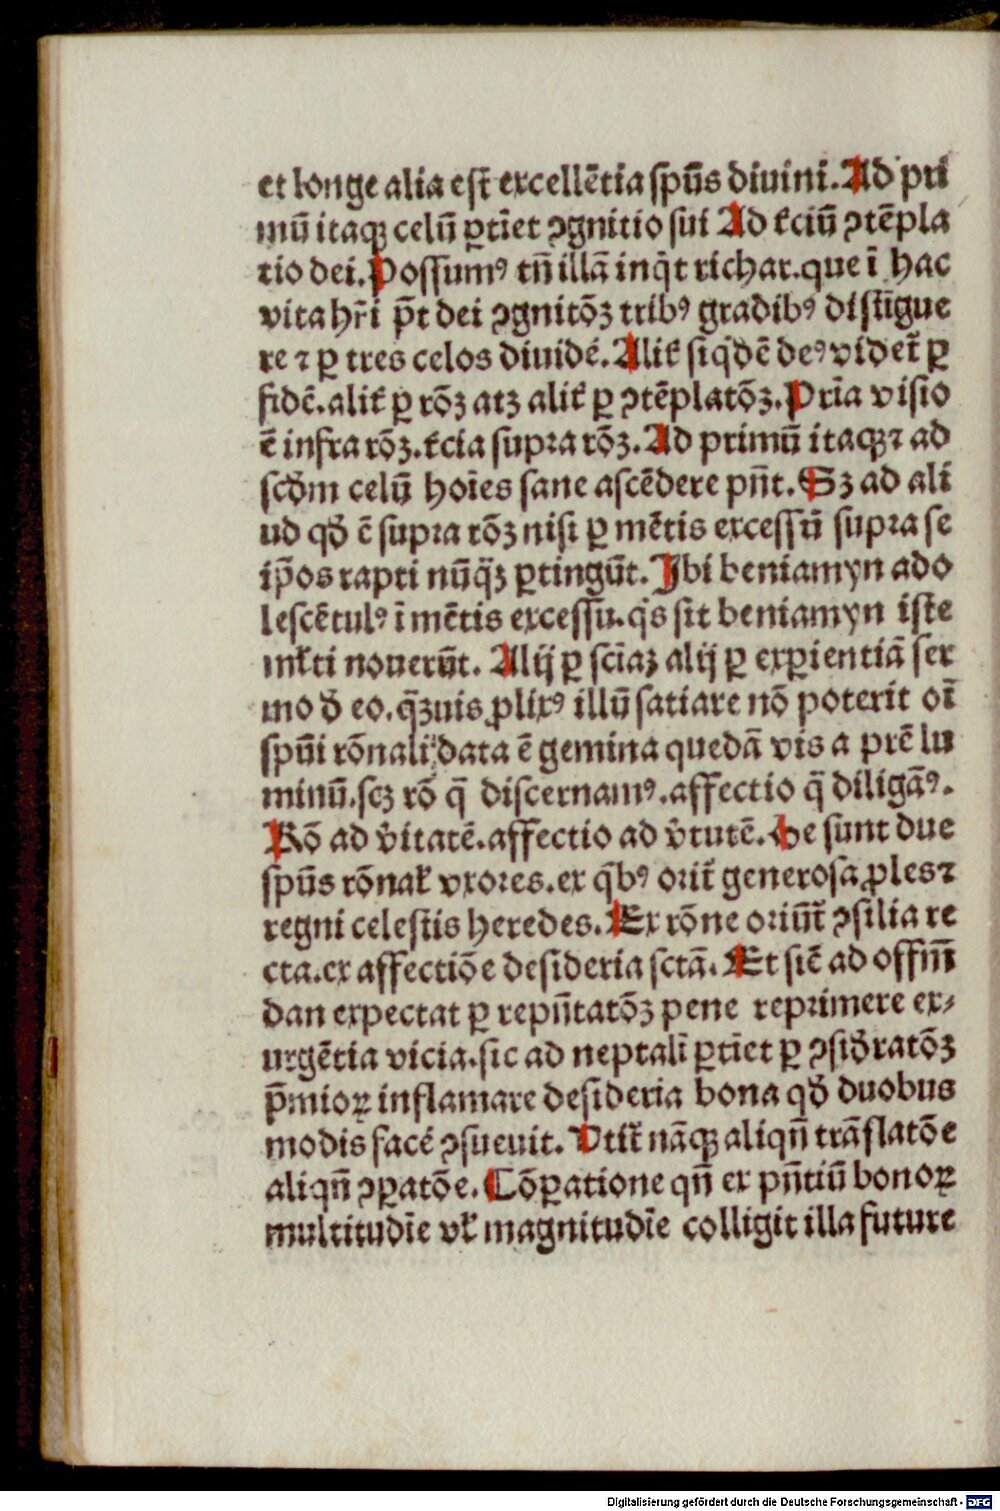 et longe alia est̄ excellētia spūs diuini. Ad pri
mū itaqꝫ celū ꝑtīet ꝯgnitio sui Ad t̄ciū ꝯtēpla
tio dei. Possumꝰ tn̄ illā inq̇t richar. que ī hac
vita hr̄i p̄t dei ꝯgnitōꝫ tribꝰ gradibꝰ distīgue
re ⁊ ꝑ tres celos diuidē. Alit̄ siq̇dē deꝰ videt̄ ꝑ
fidē. alit̄ ꝑ rōꝫ atꝫ alit̄ ꝑ ꝯtēplatōꝫ. Prīa visio
ē infra rōꝫ. t̄cia supra rōꝫ. Ad primū itaqꝫ ⁊ ad
scd̄m celū hoīes sane ascēdere pn̄t. Sꝫ ad ali
ud qd̄ ē supra rōꝫ nisi ꝑ mētis excessū supra se
ip̄os rapti nūq̄ꝫ ꝑtingūt. Ibi beniamyn ado
lescētulꝰ ī mētis excessu. q̇s sit beniamyn iste
ml̄ti nouerūt. Alij ꝑ sciaꝫ alij ꝑ exꝑientiā ser
mo d̄ eo. q̄ꝫuis ꝓlixꝰ illū satiare nō poterit oī
spūi rōnali data ē gemina quedā vis a prē lu
minū. scꝫ rō q̄ discernamꝰ. affectio q̄ diligāꝰ.
Rō ad v̄itatē. affectio ad v̄tutē. He sunt due
spūs rōnal̄ vxores. ex q̇bꝰ orit̄ generosa ꝓles ⁊
regni celestis heredes. Ex rōne oriūt̄ ꝯsilia re
cta. ex affectiōe desideria sctā. Et siē ad offm̄
dan expectat ꝑ repn̄tatōꝫ pene reprimere ex⸗
urgētia vicia. sic ad neptalī ꝑtīet ꝑ ꝯsid̄ratōꝫ
p̄mioꝝ inflamare desideria bona qd̄ duobus
modis facē ꝯsueuit. Vtit̄ nāqꝫ aliqn̄ trāslatōe
aliqn̄ ꝯꝑatōe. Cōꝑatione qn̄ ex pn̄tiū bonoꝝ
multitudīe vl̄ magnitudīe colligit illa future
Digitalisierung gefördert durch die Deutsche Forschungsgemeinschaft - DFG